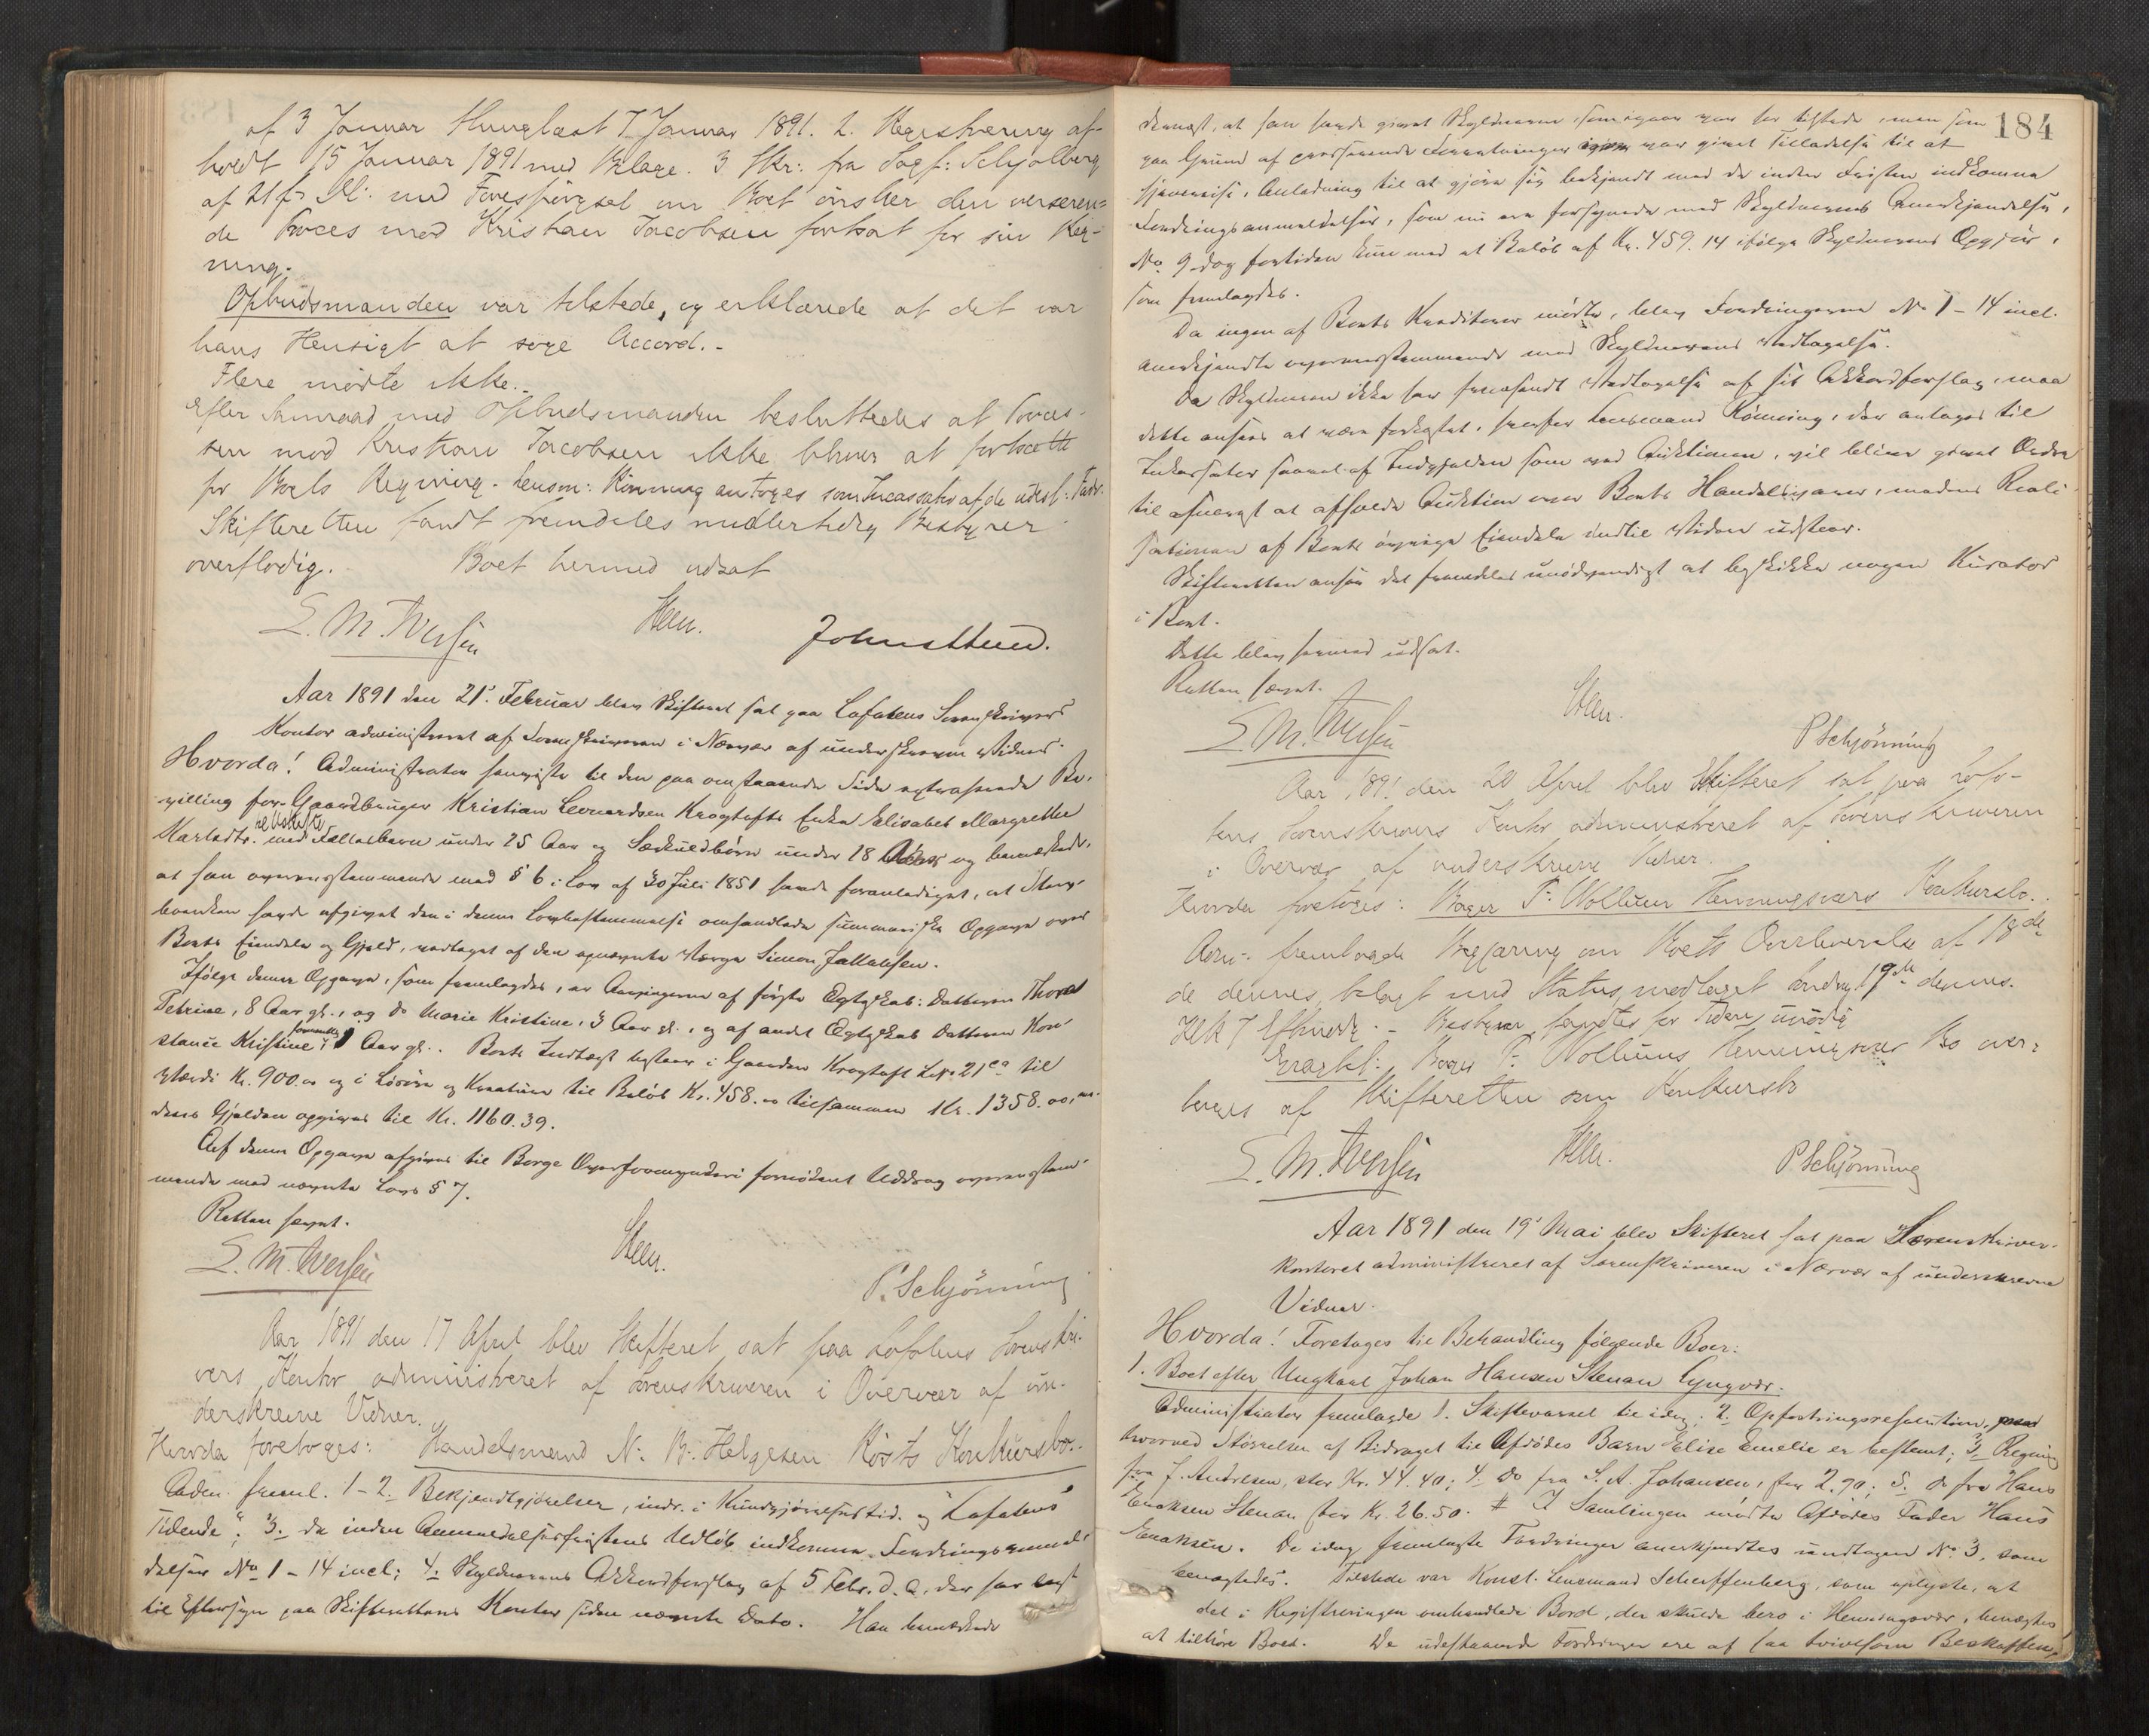 af 3 Januar thinglæst 7 Januar 1891. 2. Registrering af-
holdt 15 Januar 1891 med Bilage. 3 Skr: fra Sagf: Schjølberg
af 21 f. M: med Forespørgsel om Boet ønsker den verseren-
de Proces mod Kristian Jacobsen fortsat for sin Reg-
ning.
Opbudsmanden var tilstede, og erklærede at det var
hans Hensigt at søge Accord.-
Flere mødte ikke.-
Efter Samraad med Opbudsmanden besluttedes at Proces-
sen mod Kristian Jacobsen ikke bliver at fortsætte
for Boets Regning. Lensm: Rønning antoges som Incassator af de udest: Fordr.
Skifteretten fandt fremdeles midlertidig Bestyrer
overflødig. Boet hermed udsat
E. M. Iversen Steen. John Lund.
Aar 1891 den 21' Februar blev Skifteret sat paa Lofotens Sorenskrivers
Kontor administreret af Sorenskriveren i Nærvær af underskrevne Vidner.
Hvorda! Administrator henviste til den paa omstaaende Side extraherede Be-
villing for Gaardbruger Kristian Leonardsen Krogtofts Enke Elisabet Margrethe
Karlsdtr. med Fællesbarn under 25 Aar og Særkuldbørn under 18 Aar og bemærkede,
at han overensstemmende med § 6 i Lov af 30 Juli 1851 havde foranlediget, at Enke-
havde afgivet den i denne Lovbestemmelse omhandlede summariske Opgave over
Boets Eiendele og Gjæld, vedtaget af den opnævnte Værge Simon Jakobsen.
Ifølge denne Opgave, som fremlagdes, er Arvingerne af første Ægteskab: Datteren Thora
Petrine, 8 Aar gl., og Do Marie Kristine, 3 Aar gl., og af andet Ægteskab Datteren Kon-
stance Kristine, 1 Aar gl.. Boets Indtægt bestaar i Gaarden Krogtoft Lnr 21 ca til
Værdi Kr. 900.00 og i Løsøre og Kreature til Beløb Kr. 458.00 tilsammen Kr. 1358.00, me-
dens Gjælden opgives til Kr. 1160.39.
Af denne Opgave afgives til Borge Overformynderi fornødent Uddrag overensstem-
mende med nævnte Lovs § 7.
Retten hævet.
E. M. Iversen Steen. P. Schjönning
Aar 1891 den 17 April blev Skifteret sat paa Lofotens Sorenskri-
vers Kontor administreret af Sorenskriveren i Overvær af un-
derskrevne Vidner.
Hvorda foretoges: Handelsmand N. B. Helgesen Røsts Konkursbo.
Adm. freml. 1-2. Bekjendtgjørelser, indr. i Kundgjørelsestid. og "Lofotens
Tidende"; 3. de inden Anmeldelsesfristens Udløb indkomne Fordringsanmel-
delser No 1-14 incl; 4. Skyldnerens Akkordforslag af 5 Febr. d. A., der har lagt
til Eftersyn paa Skifterettens Kontor siden nævnte Dato. Han bemærkede
184
dernæst, at han havde givet Skyldneren, som igaar var her tilstede, men som
paa Grund af Forretninger var givet Tilladelse til at
hjemreise, Anledning til at gjøre sig bekjendt med de inden Fristen indkomne
Fordringsanmeldelser, som nu ere forsynede med Skyldnerens Anerkjendelse,
No 9 dog fortiden kun med et Beløb af Kr. 459.14 ifølge Skyldnerens Opgjør,
som fremlagdes.
Da ingen af Boets Kreditorer mødte, blev Fordringerne No 1-14 incl.
anerkjendte overensstemmende med Skyldnerens Vedtagelse.
Da Skyldneren ikke har fremsendt Vedtagelse af sit Akkordforslag, maa
dette ansees at være forkastet, hvorfor Lensmand Rønning, der antages til
Inkassator saavel af Indgjælden som ved Auktionen, vil blive givet Ordre
til ufortøvet at afholde Auktion over Boets Handelsvarer, medens Reali-
sationen af Boets øvrige Eiendele indtil Videre udstaar.
Skifteretten ansaa det fremdeles unødvendigt at beskikke nogen Kurator
i Boet.
Dette blev hermed udsat.
Retten hævet.
E. M. Iversen Steen. P Schjönning
Aar 1891 den 20 April blev Skifteret sat paa Lofo-
tens Sorenskrivers Kontor administreret af Sorenskriveren
i Overvær af underskrevne Vidner.
Hvorda foretoges: Bager P. Wollums Henningsværs Konkursbo.
Adm. fremlagde Begjæring om Boets Overleverelse af 18de
de dennes, belagt med Status, modtaget 19de dennes.
Klk 7 Efterm. - Bestyrer fandtes for Tiden unødig
Eragtet: Bager P. Wollums Henningsvær Bo over-
tages af Skifteretten som Konkursbo
E. M. Iversen Steen. P. Schjönning
Aar 1891 den 19' Mai blev Skifteret sat paa Sorenskriver-
kontoret administreret af Sorenskriveren i Nærvær af underskrevne
Vidner.
Hvorda! Foretoges til Behandling følgende Boer:
1. Boet efter Ungkarl Johan Hansen Stenan Lyngvær.
Administrator fremlagde 1. Skiftevarsel til idag; 2. Opfostringsresolution,
hvorved Størrelsen af Bidraget til Afdødes Barn Elise Emelie er bestemt; 3. Regning
fra J. Andresen, stor Kr. 44.40; 4. Do fra S. A. Johansen, stor 2.90; 5. do fra Hans
Enoksen Stenan stor Kr. 26.50. # I Samlingen mødte Afdødes Fader Hans
Enoksen. De idag fremlagte Fordringer anerkjendtes undtagen No 3, som
benægtedes. Tilstede var Konst. Lensmand Scheffenberg, som oplyste, at
det i Registreringen omhandlede Bord, der skulde bero i Henningsvær, benægtes
at tilhøre Boet. De udestaaende Fordringer ere af saa tvivlsom Beskaffen-